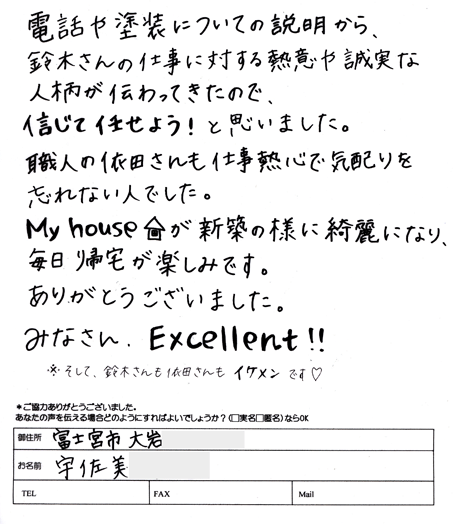 電話や塗装についての説明から、
鈴木さんの仕事に対する熱意や誠実な
人柄が伝わってきたので、
信じて任せよう！と思いました。
職人の依田さんも仕事熱心で気配りを
忘れない人でした。
My houseが新築の様に綺麗になり、
毎日帰宅が楽しみです。
ありがとうございました。
みなさん、Excellent!!
※そして、鈴木さんも依田さんもイケメンです♡
＊ご協力ありがとうございました。
あなたの声を伝える場合どのようにすればよいでしょうか？(□実名□匿名)ならOK
御住所 富士宮市 大岩
お名前 宇佐美
TEL FAX Mail